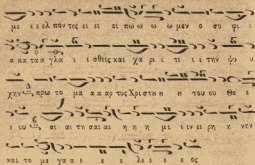 με ε ελ πον τες ει ει πω ω ω ω μεν ο σο φι
α κα τα γλα ι σθεις και χα ρι τι ε τη ψυ
χην, πρω το μα α αρ τυς Χριστη η του ου Θε ε
ε ου αι αι τη σαι αι η η η μι ιν ει ρη η νην
και το με γα α ε ε λε ε ε ος